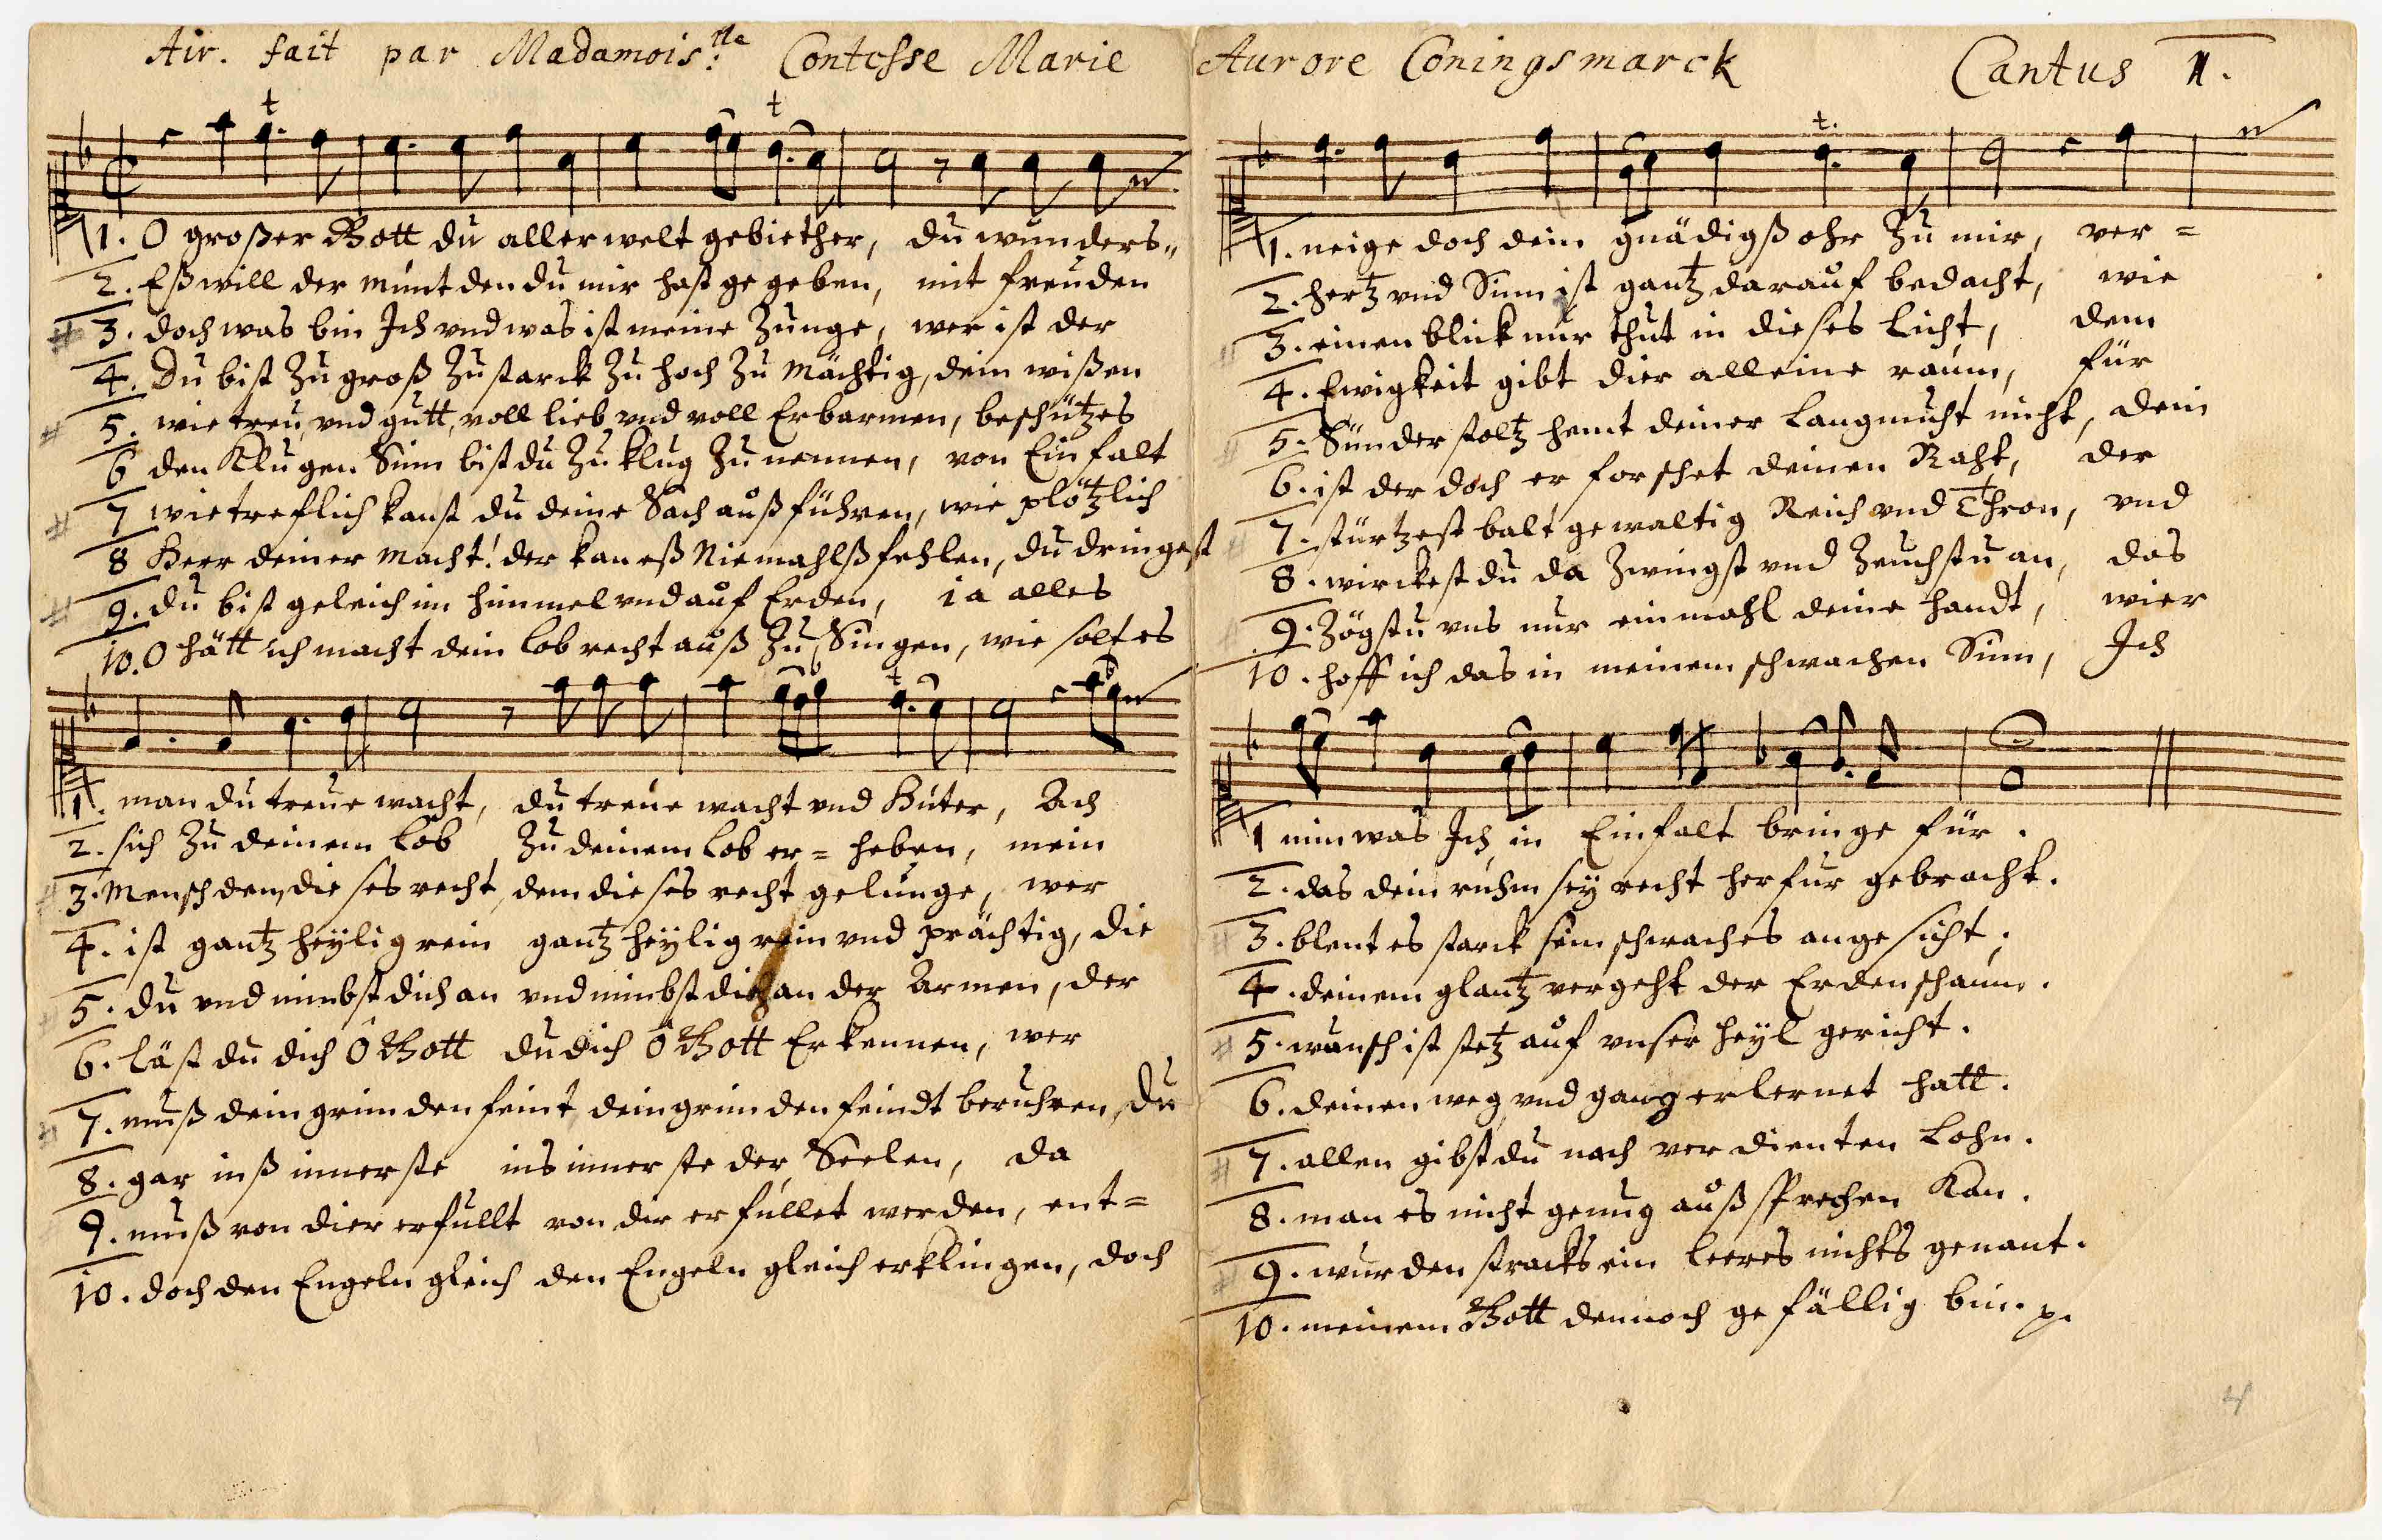 Air. fait par Madamois:lle Contesse Marie Aurore Coningsmarck Cantus 1.
1. O großer Gott du aller welt gebiether, du wunders„
2. Eß will der munt den du mir hast gegeben, mit freuden
3. doch was bin Ich vnd was ist meine Zunge, wer ist der
4. Du bist Zu groß Zu starck Zu hoch Zu Mächtig, dein wißen
5. wie treu, vnd gutt, voll lieb vnd voll Erbarmen, beschützes
6 den Klugen Sinn bist du Zu klug Zu nennen, von Einfalt
7 wie treflich kanst du deine Sach außführen, wie plötzlich
8 Herr deiner Macht! der kan eß Niemahlß fehlen, du dringest
9. du bist geleich im himmel vnd auf Erden, ia alles
10. O hätt ich macht dein lob recht auß Zu Singen, wie solt es
1. man du treue wacht, du treue wacht vnd Hüter, Ach
2. sich Zu deinem Lob Zu deinem Lob er= heben, mein
3. Mensch dem, dieses recht, dem dieses recht gelunge, wer
4. ist gantz heÿlig rein gantz heÿlig rein vnd prächtig, die
5. du vnd nimbst dich an vnd nimbst dich an der Armen, der
6. läst du dich ô Gott du dich ô Gott Erkennen, wer
7. muß dein grim den feint dein grim den feindt beruhren, du
8. gar inß innerste ins innerste der Seelen, da
9. muß von dier erfullt von dir erfüllet werden, ent=
10. doch den Engeln gleich den Engeln gleich erklingen, doch
1. neige doch dein gnädigß ohr Zu mir, ver=
2. hertz vnd Sinn ist gantz darauf bedacht, wie
3. einen blick nur thut in dieses Licht, dem
4. Ewigkeit gibt dier alleine raum, für
5. Sünder stoltz hemt deiner Langmuht nicht, dein
6. ist der doch erforschet deinen Raht, der
7. stürtzest balt gewaltig Reich vnd Thron, vnd
8. wirckest du da Zwingst vnd Zeuchstu an, das
9. Zögstu vns nur einmahl deine handt, wier
10. hoff ich das in meinem schwachen Sinn, Ich
1 nim was Ich in Einfalt bringe für.
2. das dein ruhm seÿ recht herfur gebracht.
3. blent es starck sein schwaches angesicht.
4. deinem glantz vergeht der Erden schaum.
5. wunsch ist stetz auf vnser heÿl gericht.
6. deinen weg vnd gang erlernet hatt.
7. allen gibst du nach verdienten Lohn.
8. man es nicht genug außsprechen Kan.
9. wurden stracks ein leeres nichts genant.
10. meinem Gott dennoch gefällig bin.